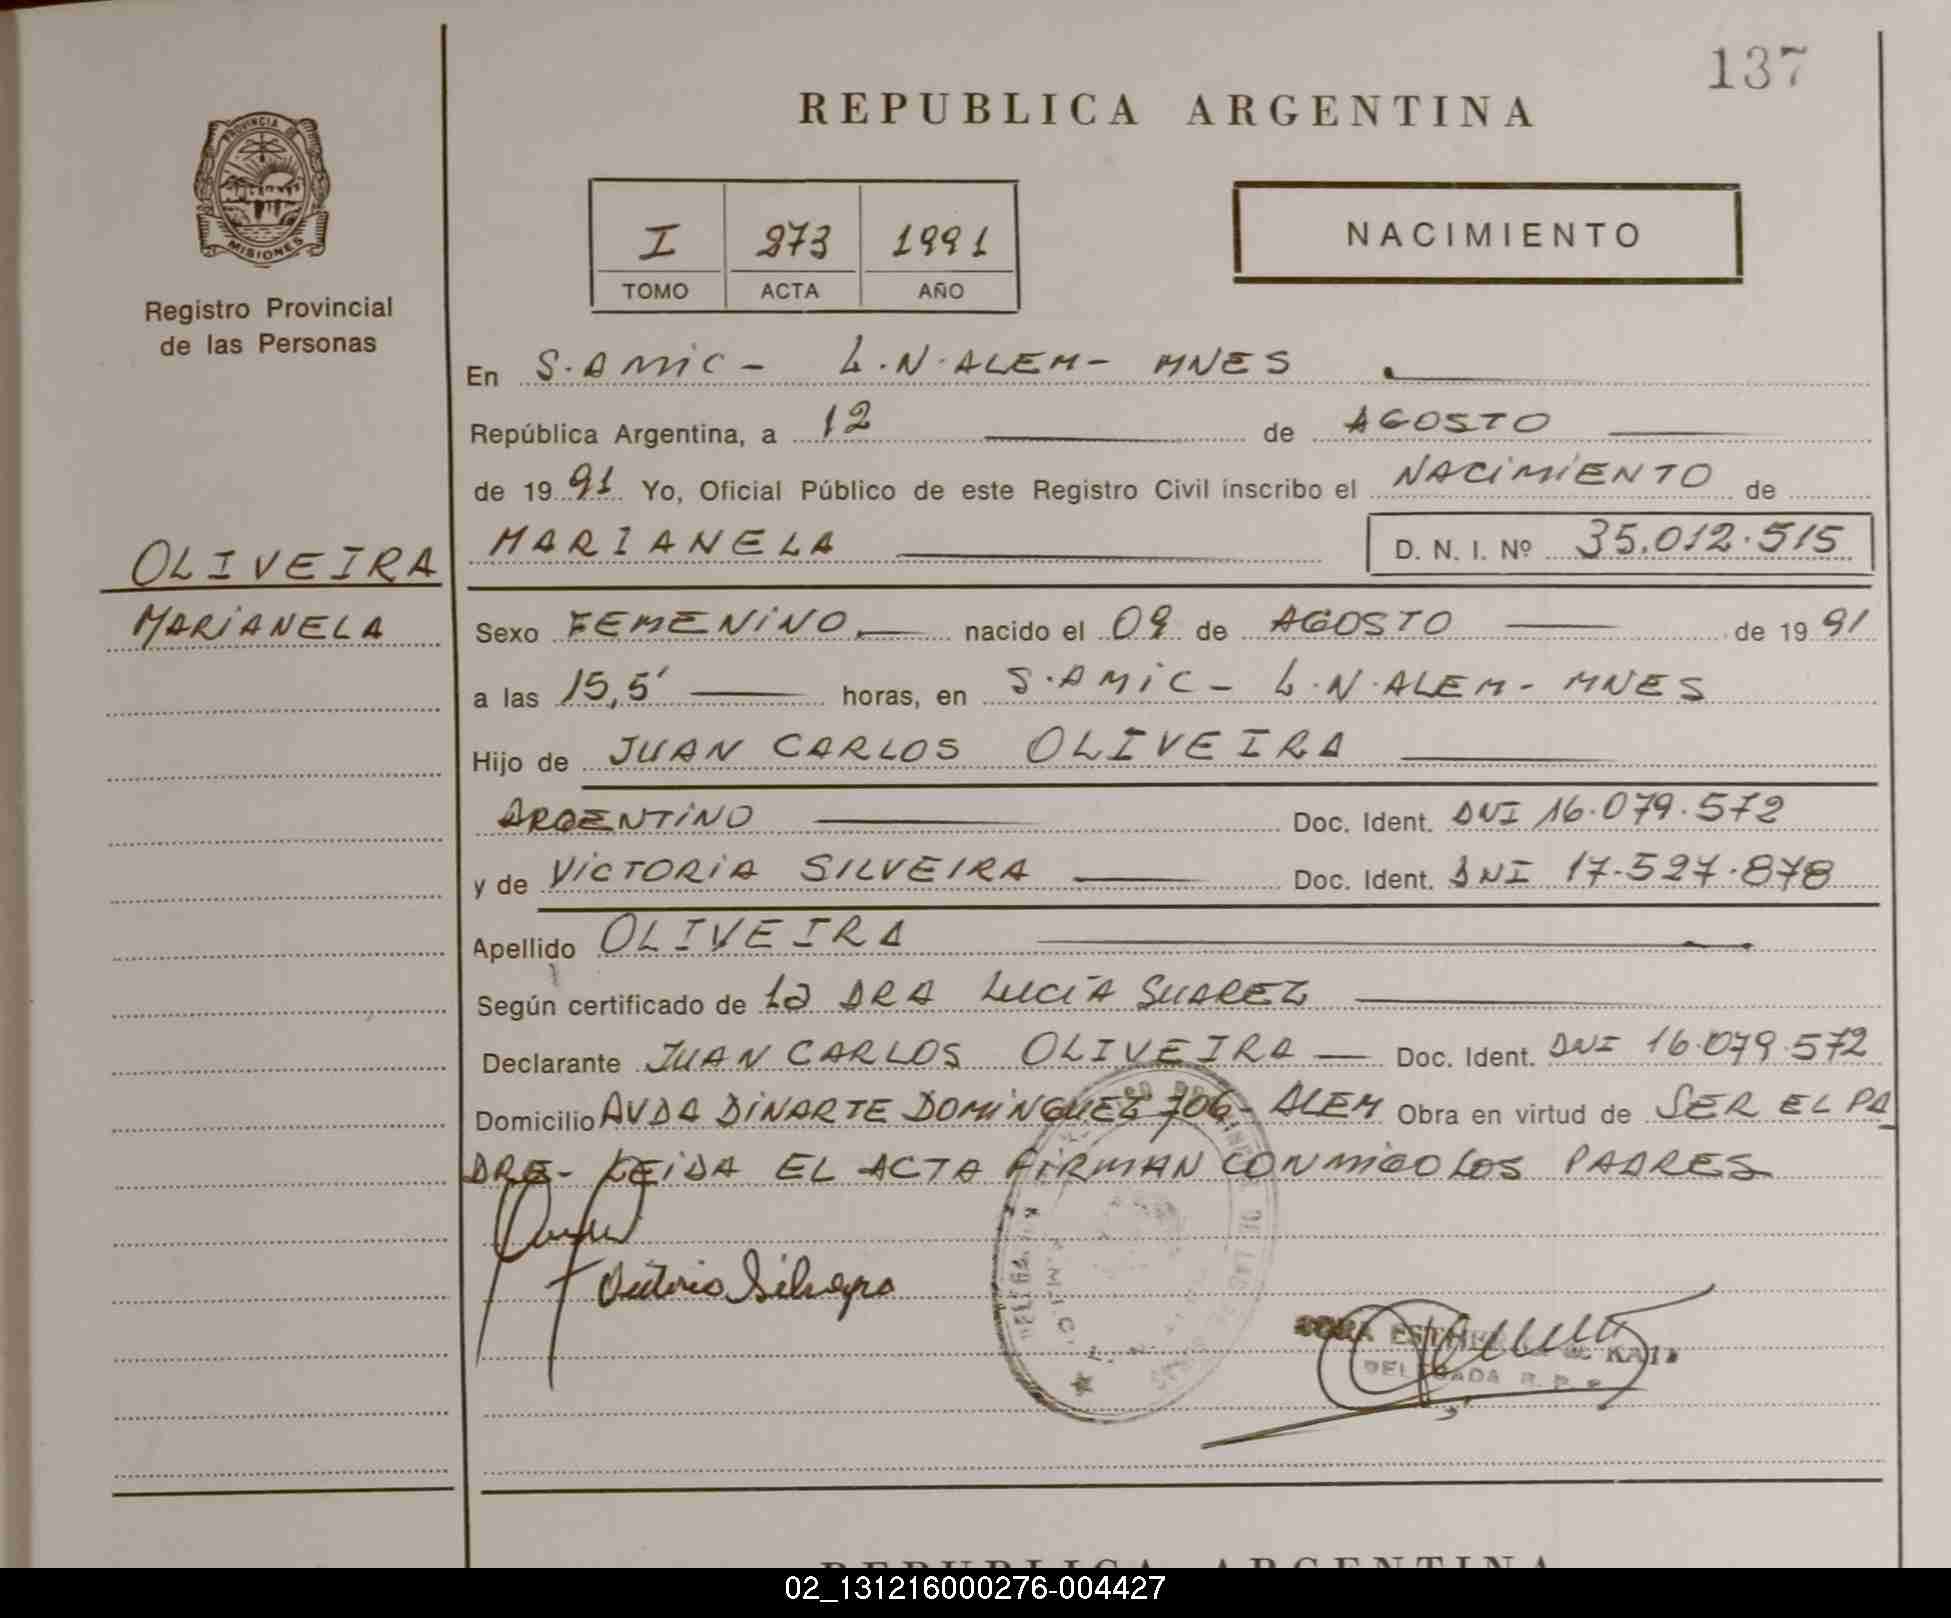 137
REPUBLICA ARGENTINA
PROVINCIA DE
MISIONES
Registro Provincial
de las Personas
I 273 1991
TOMO ACTA AÑO
NACIMIENTO
En S. AMIC - L.N. ALEM - MNES
República Argentina, a 12 de AGOSTO
de 1991 Yo, Oficial Público de este Registro Civil inscribo el NACIMIENTO de
MARIANELA D. N. I. Nº 35.012.515
OLIVEIRA
MARIANELA
Sexo FEMENINO nacido el 09 de AGOSTO de 1991
a las 15,5' horas, en S. AMIC - L.N. ALEM - MNES
Hijo de JUAN CARLOS OLIVEIRA
ARGENTINO Doc. Ident. DNI 16.079.572
y de VICTORIA SILVEIRA Doc. Ident. DNI 17.527.878
Apellido OLIVEIRA
Según certificado de La DRA LUCÍA SUAREZ
Declarante JUAN CARLOS OLIVEIRA Doc. Ident. DNI 16.079.572
Domicilio AVDA DINARTE DOMINGUEZ 706 - ALEM Obra en virtud de SER EL PA
DRE - LEIDA EL ACTA FIRMAN CONMIGO LOS PADRES
DELEGADA R. P. P.
REPUBLICA ARGENTINA
02_131216000276-004427